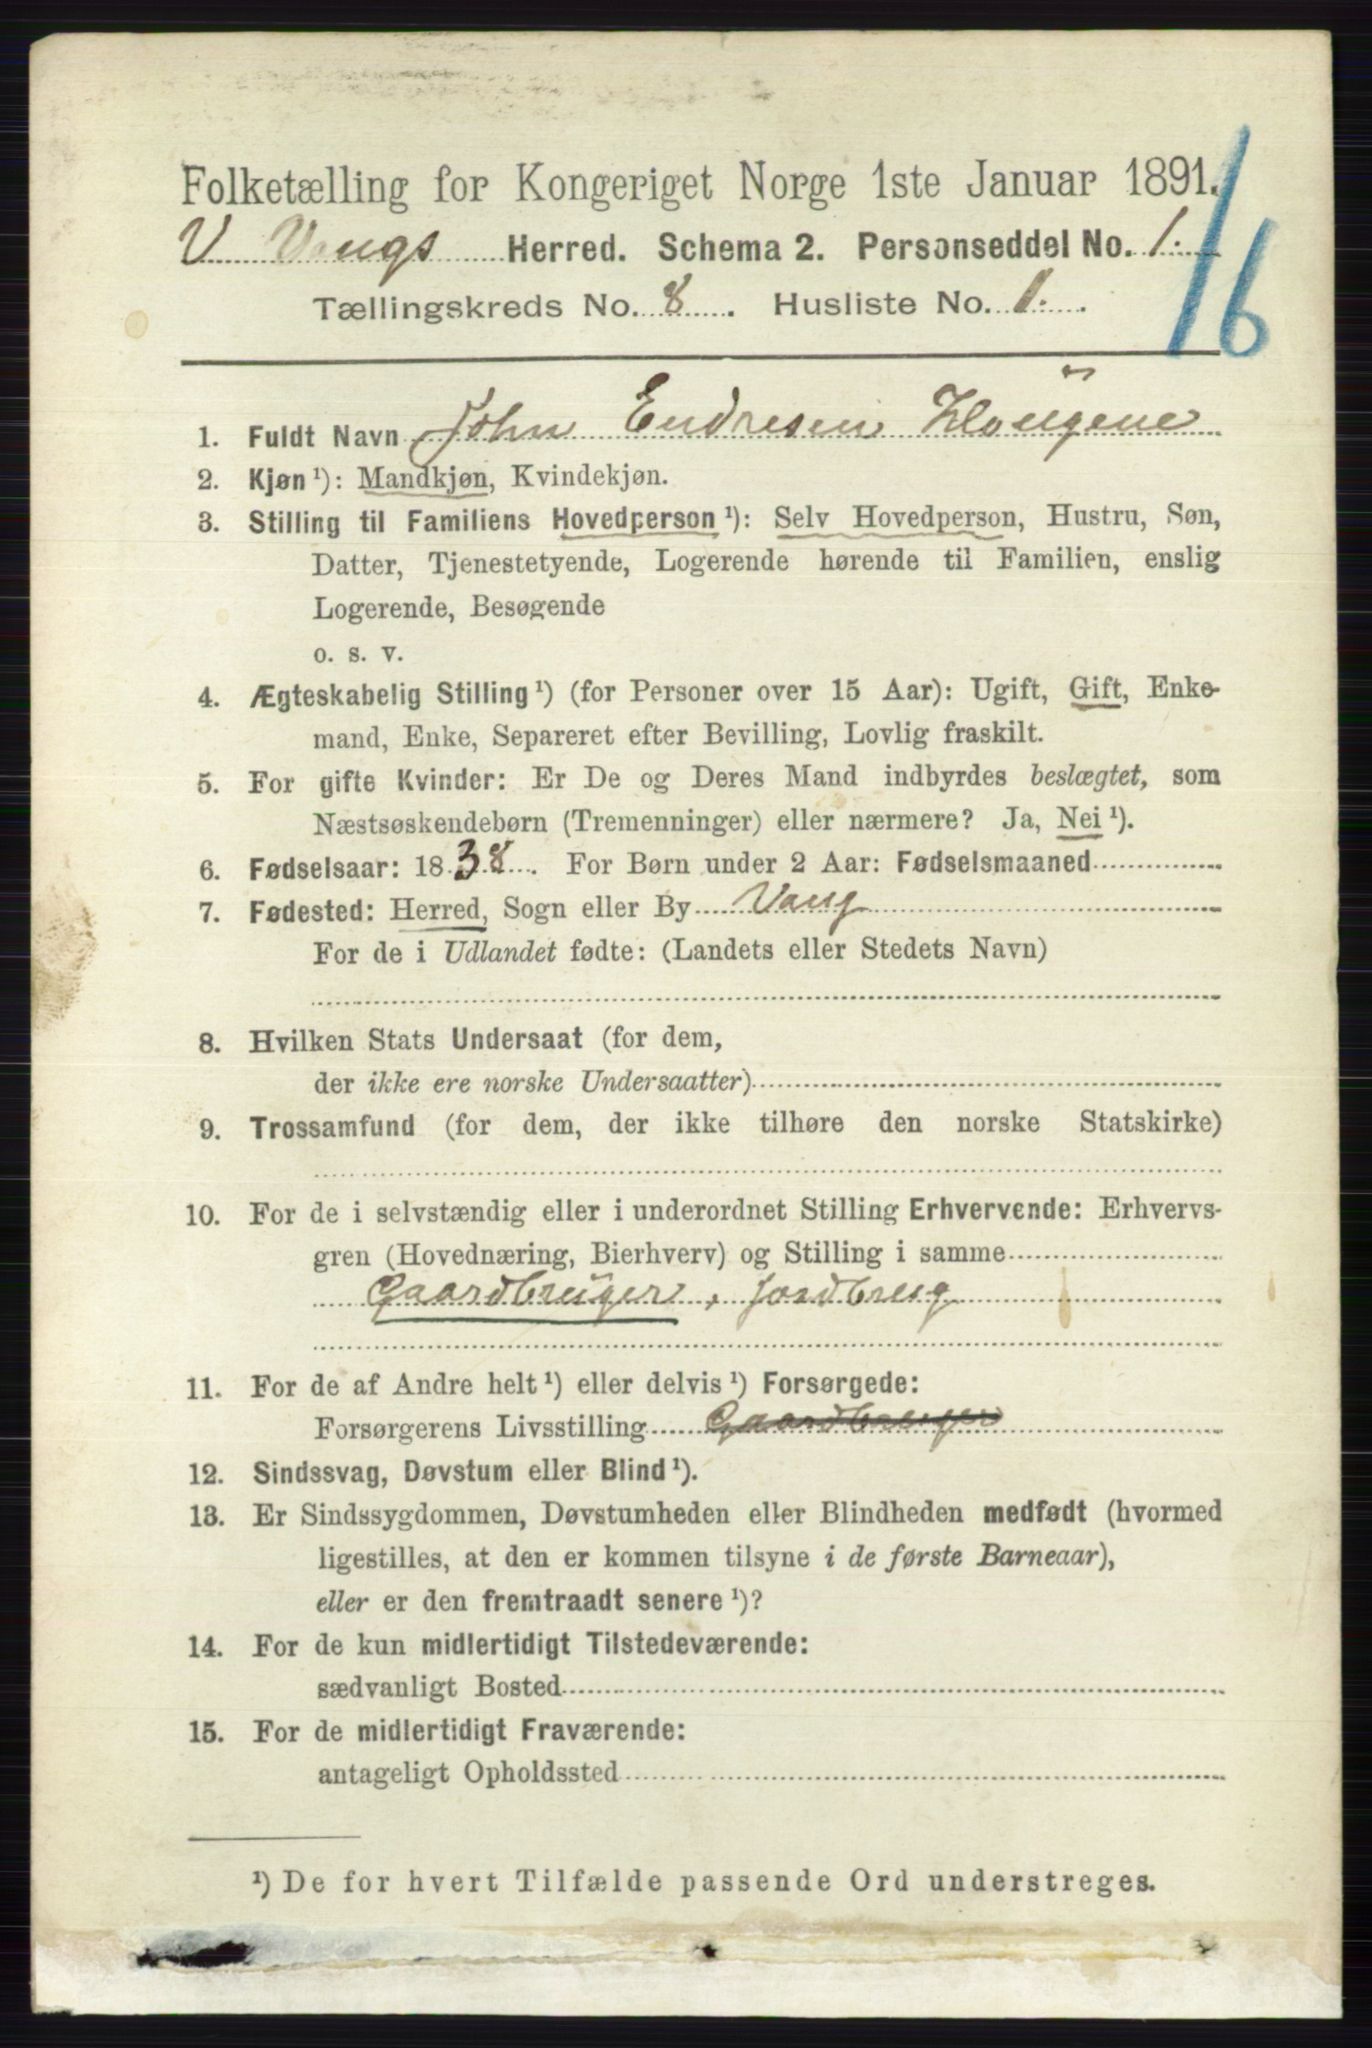 Folketælling for Kongeriget Norge 1ste Januar 1891.
V Vangs Herred. Schema 2. Personseddel No. 1.
16
Tællingskreds No. 8. Husliste No. 1.
1. Fuldt Navn John Endresen Hougene
2. Kjøn ¹): Mandkjøn, Kvindekjøn.
3. Stilling til Familiens Hovedperson ¹): Selv Hovedperson, Hustru, Søn,
Datter, Tjenestetyende, Logerende hørende til Familien, enslig
Logerende, Besøgende
o. s. v.
4. Ægteskabelig Stilling ¹) (for Personer over 15 Aar): Ugift, Gift, Enke-
mand, Enke, Separeret efter Bevilling, Lovlig fraskilt.
5. For gifte Kvinder: Er De og Deres Mand indbyrdes beslægtet, som
Næstsøskendebørn (Tremenninger) eller nærmere? Ja, Nei ¹).
6. Fødselsaar: 1838. For Børn under 2 Aar: Fødselsmaaned
7. Fødested: Herred, Sogn eller By Vang
For de i Udlandet fødte: (Landets eller Stedets Navn)
8. Hvilken Stats Undersaat (for dem,
der ikke ere norske Undersaatter)
9. Trossamfund (for dem, der ikke tilhøre den norske Statskirke)
10. For de i selvstændig eller i underordnet Stilling Erhvervende: Erhvervs-
gren (Hovednæring, Bierhverv) og Stilling i samme
Gaardbruger, Jordbrug
11. For de af Andre helt ¹) eller delvis ¹) Forsørgede:
Forsørgerens Livsstilling Gaardbruger
12. Sindssvag, Døvstum eller Blind ¹).
13. Er Sindssygdommen, Døvstumheden eller Blindheden medfødt (hvormed
ligestilles, at den er kommen tilsyne i de første Barneaar),
eller er den fremtraadt senere ¹)?
14. For de kun midlertidigt Tilstedeværende:
sædvanligt Bosted
15. For de midlertidigt Fraværende:
antageligt Opholdssted
¹) De for hvert Tilfælde passende Ord understreges.